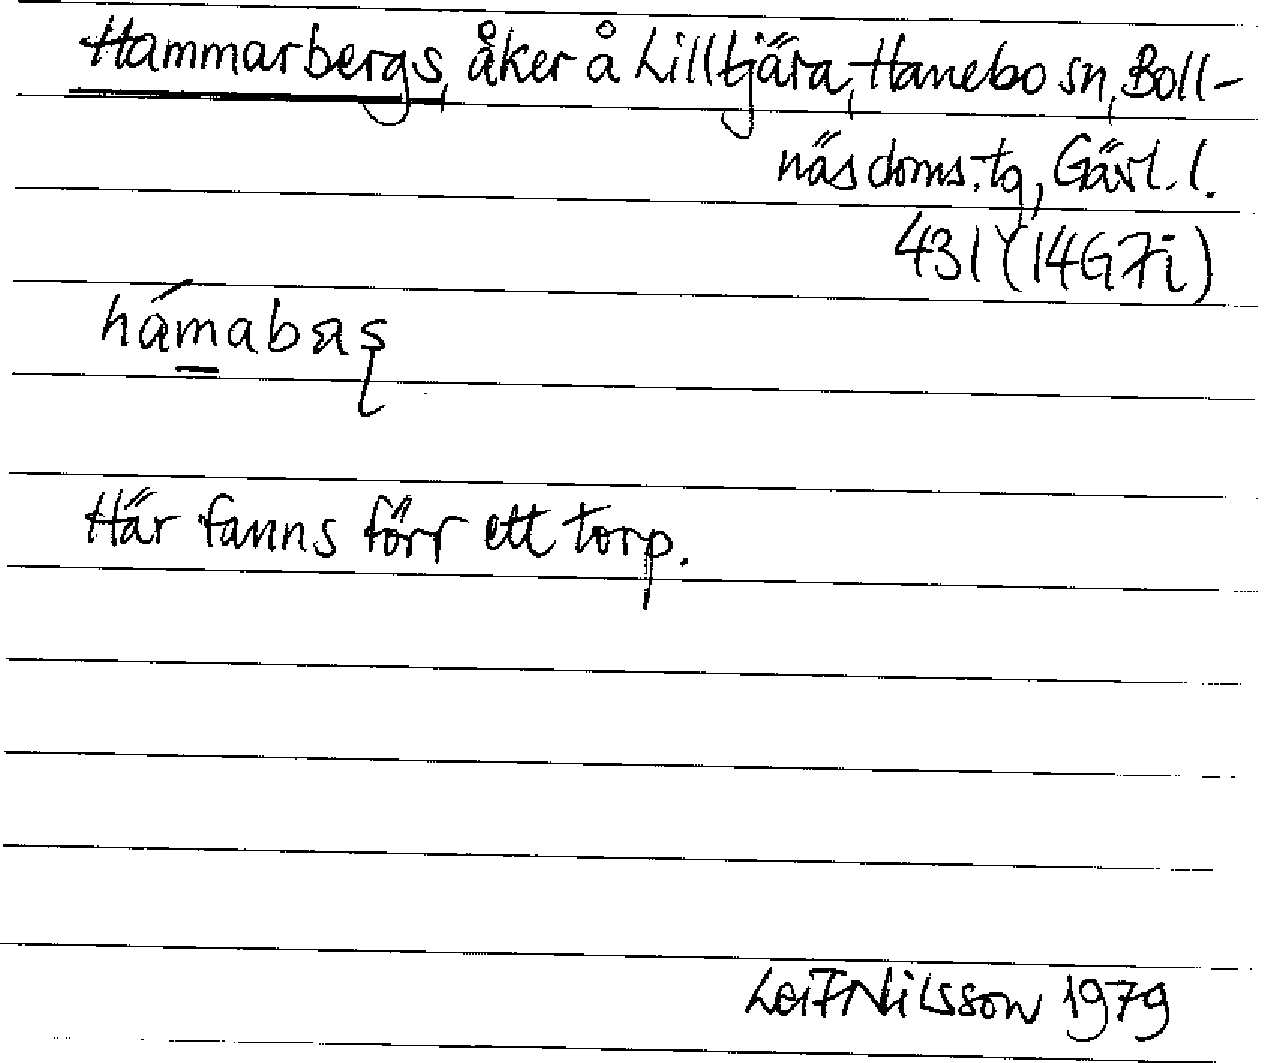 Hammarbergs, åker å Lilltjära, Hanebo sn, Boll-
näs doms.tg, Gävl. l.
431 (14G7i)
hámabas̨
Här fanns förr ett torp.
Leif Nilsson 1979